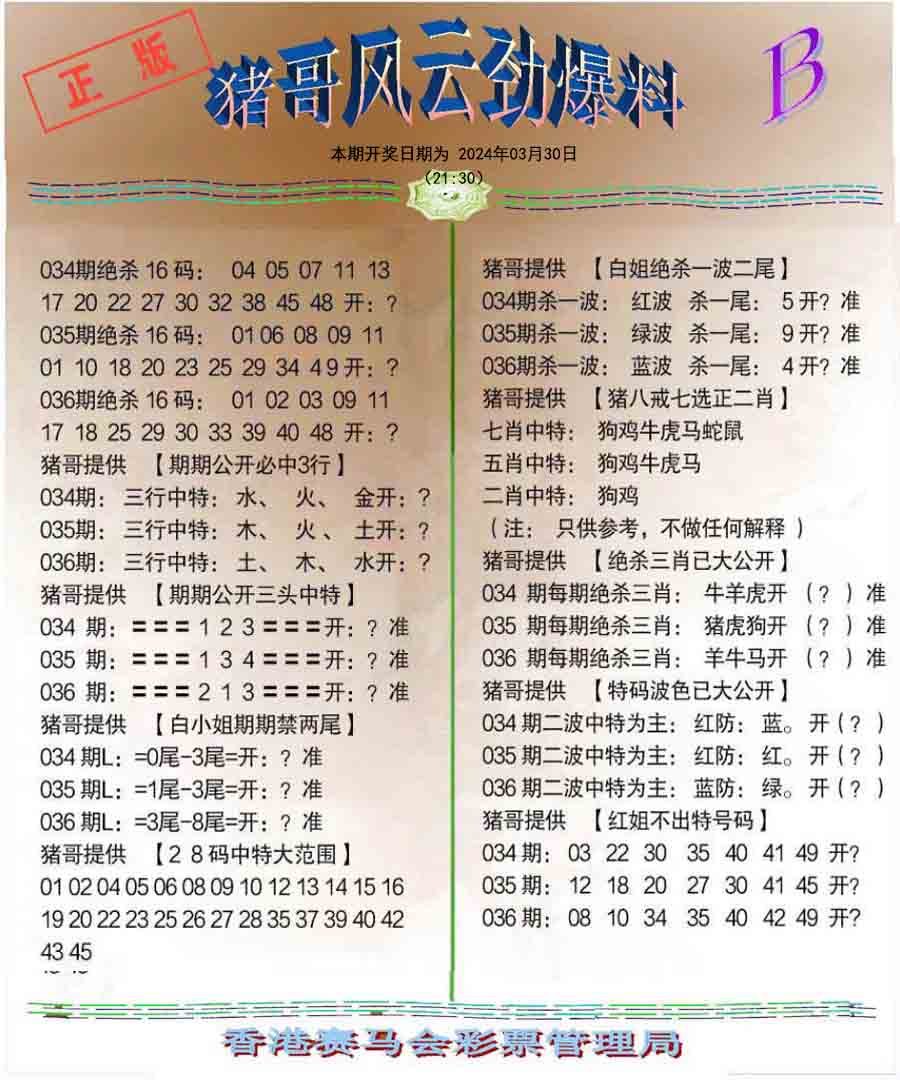 正版
猪哥风云劲爆料
B
本期开奖日期为 2024年03月30日
(21:30)
034期绝杀16码： 04 05 07 11 13
17 20 22 27 30 32 38 45 48 开：?
035期绝杀16码： 01 06 08 09 11
01 10 18 20 23 25 29 34 49 开：?
036期绝杀16码： 01 02 03 09 11
17 18 25 29 30 33 39 40 48 开：?
猪哥提供 【期期公开必中3行】
034期：三行中特：水、 火、 金开：?
035期：三行中特：木、 火、 土开：?
036期：三行中特：土、 木、 水开：?
猪哥提供 【期期公开三头中特】
034 期：===1 2 3===开：? 准
035 期：===1 3 4===开：? 准
036 期：===2 1 3===开：? 准
猪哥提供 【白小姐期期禁两尾】
034期L：=0尾-3尾=开：? 准
035期L：=1尾-3尾=开：? 准
036期L：=3尾-8尾=开：? 准
猪哥提供 【28码中特大范围】
01 02 04 05 06 08 09 10 12 13 14 15 16
19 20 22 23 25 26 27 28 35 37 39 40 42
43 45
猪哥提供 【白姐绝杀一波二尾】
034期杀一波： 红波 杀一尾： 5开? 准
035期杀一波： 绿波 杀一尾： 9开? 准
036期杀一波： 蓝波 杀一尾： 4开? 准
猪哥提供 【猪八戒七选正二肖】
七肖中特： 狗鸡牛虎马蛇鼠
五肖中特： 狗鸡牛虎马
二肖中特： 狗鸡
（注： 只供参考，不做任何解释 ）
猪哥提供 【绝杀三肖已大公开】
034 期每期绝杀三肖： 牛羊虎开 （? ）准
035 期每期绝杀三肖： 猪虎狗开 （? ）准
036 期每期绝杀三肖： 羊牛马开 （? ）准
猪哥提供 【特码波色已大公开】
034期二波中特为主： 红防： 蓝。 开（? ）
035期二波中特为主： 红防： 红。 开（? ）
036期二波中特为主： 蓝防： 绿。 开（? ）
猪哥提供 【红姐不出特号码】
034期： 03 22 30 35 40 41 49 开?
035期： 12 18 20 27 30 41 45 开?
036期： 08 10 34 35 40 42 49 开?
香港赛马会彩票管理局